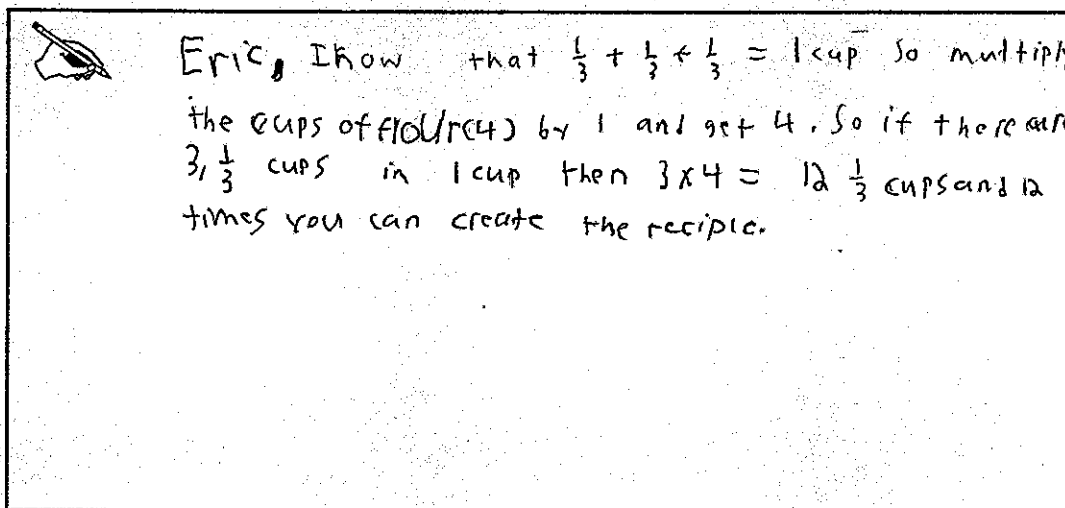 Eric, I know that 1/3 + 1/3 + 1/3 = 1 cup so multiply
the cups of flour(4) by 1 and get 4. So if there are
3, 1/3 cups in 1 cup then 3x4 = 12 1/3 cups and 12
times you can create the reciple.